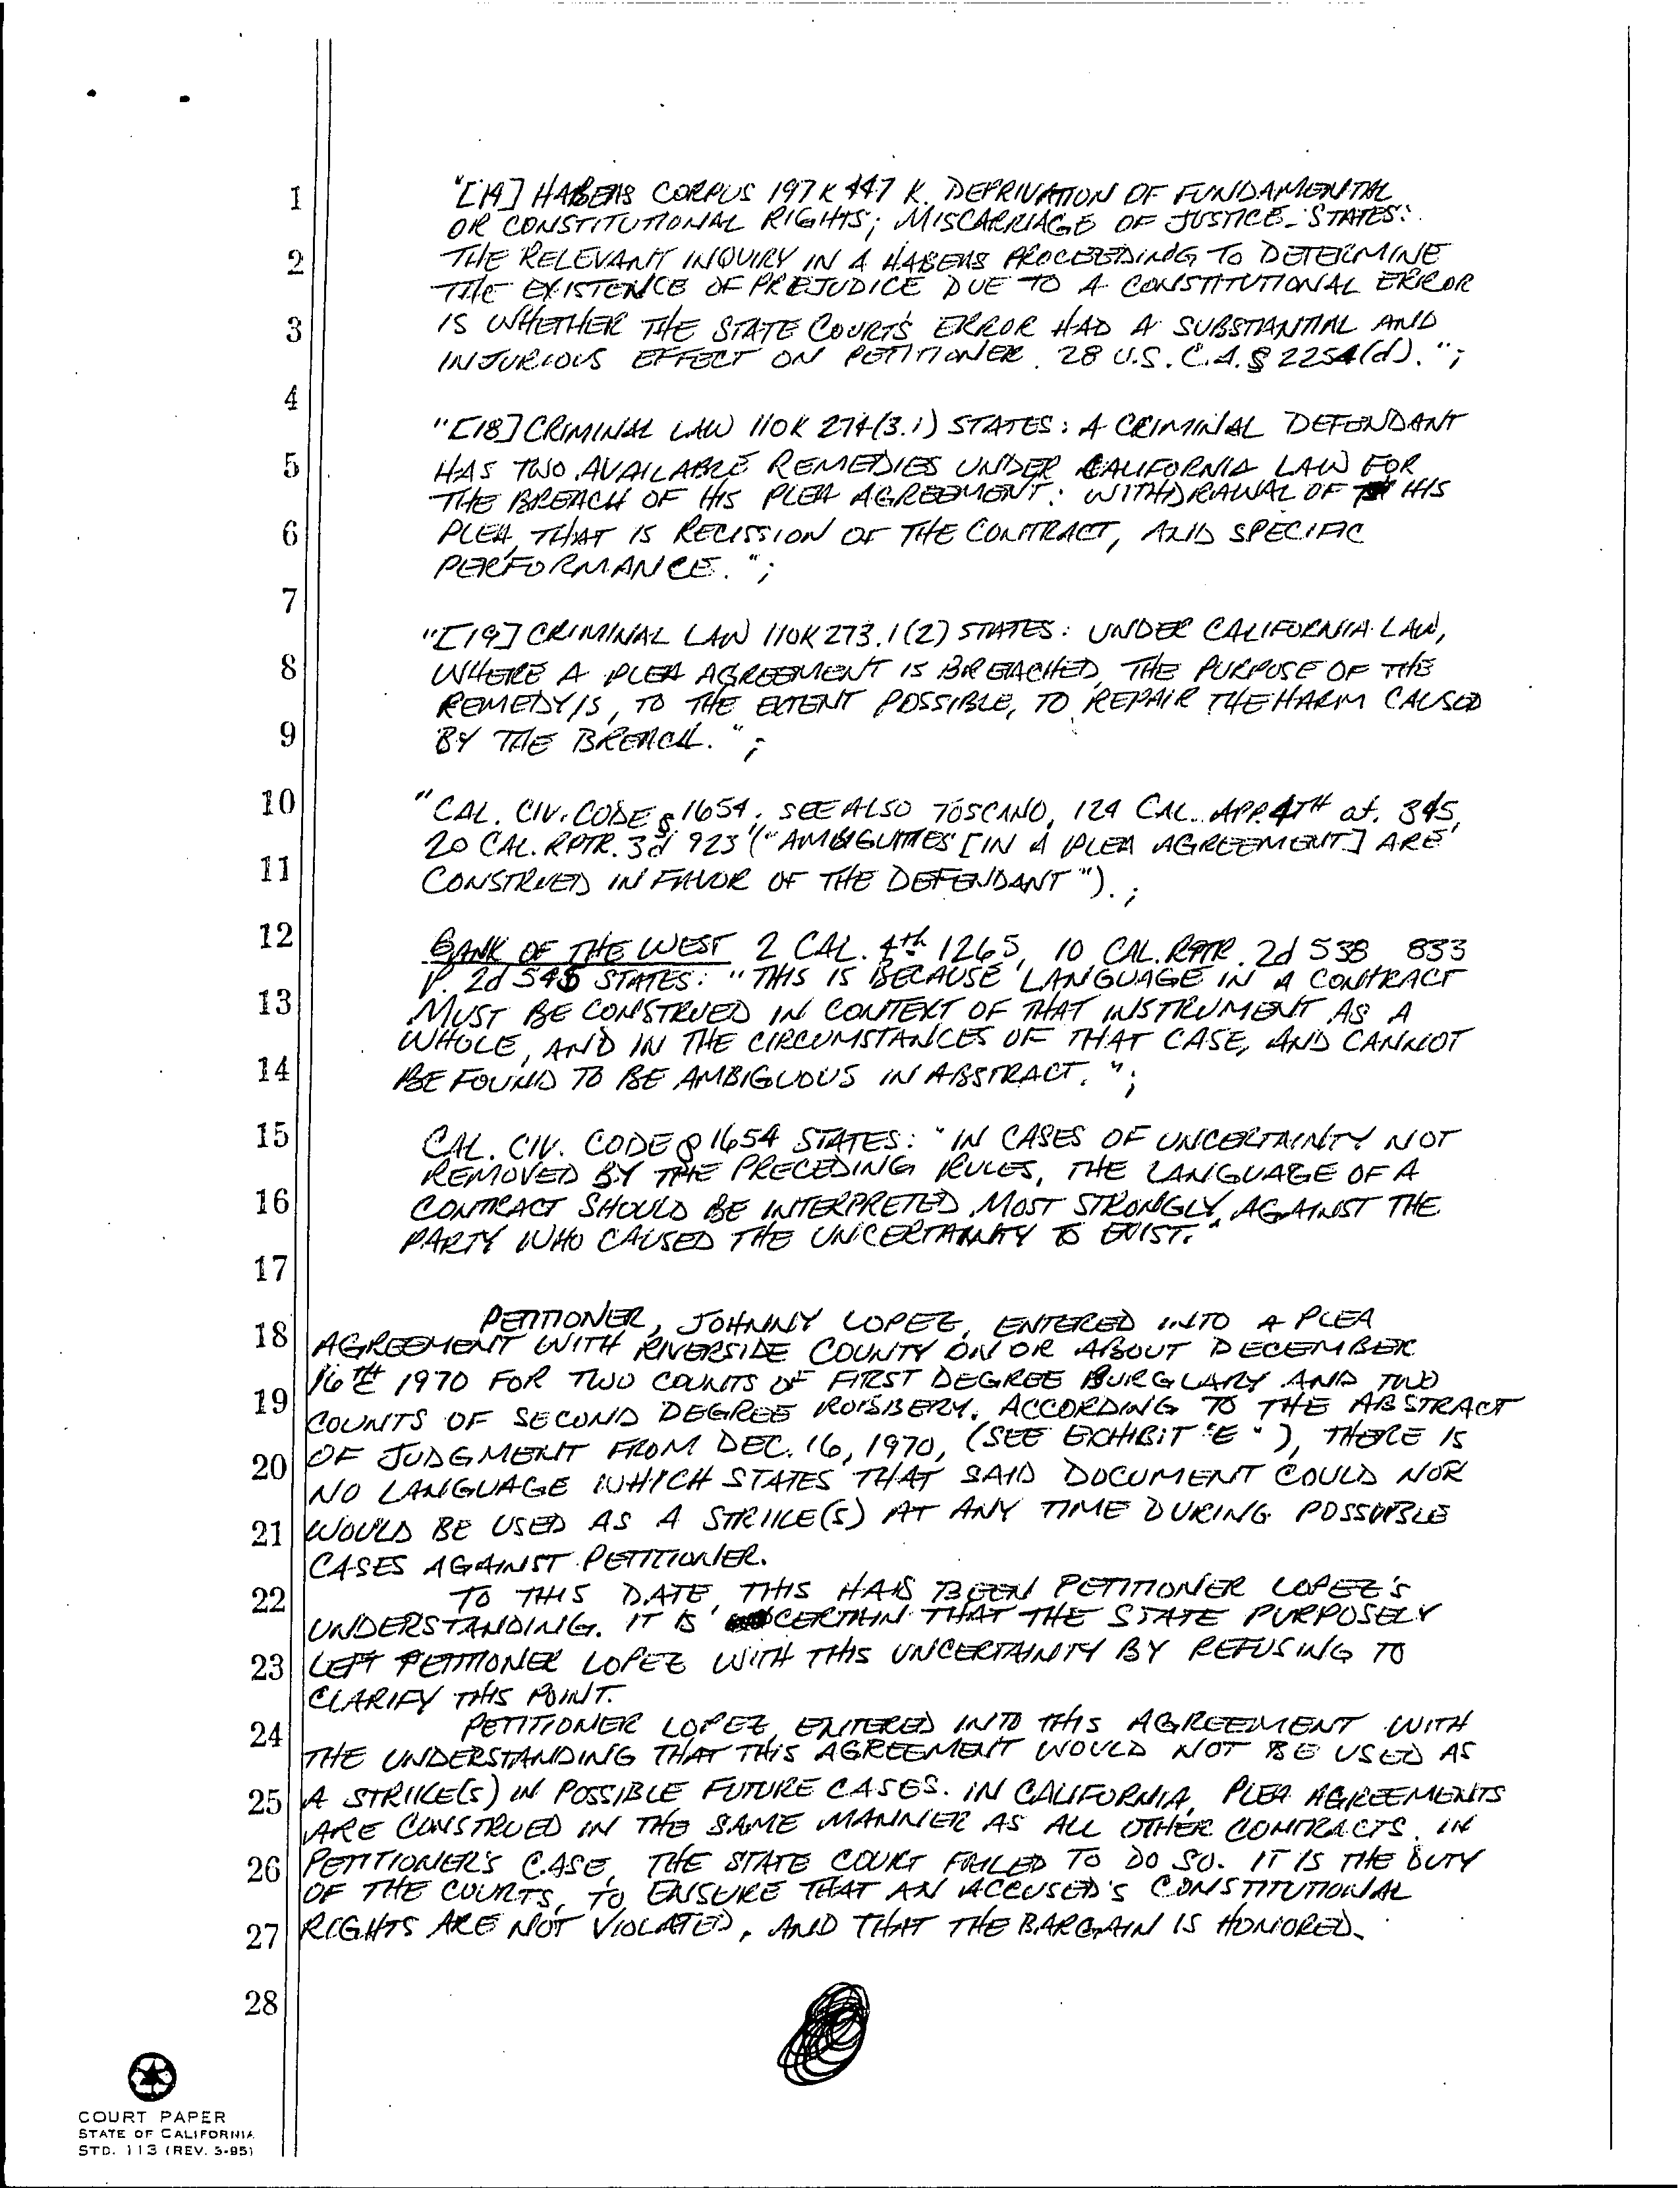 1 "[14] HABEAS CORPUS 197 K 447 K. DEPRIVATION OF FUNDAMENTAL
OR CONSTITUTIONAL RIGHTS; MISCARRIAGE OF JUSTICE - STATES:
2 THE RELEVANT INQUIRY IN A HABEAS PROCEEDING TO DETERMINE
THE EXISTENCE OF PREJUDICE DUE TO A CONSTITUTIONAL ERROR
3 IS WHETHER THE STATE COURT'S ERROR HAD A SUBSTANTIAL AND
INJURIOUS EFFECT ON PETITIONER. 28 U.S.C.A. § 2254(d).";
4
"[18] CRIMINAL LAW 110K 274(3.1) STATES: A CRIMINAL DEFENDANT
5 HAS TWO AVAILABLE REMEDIES UNDER CALIFORNIA LAW FOR
THE BREACH OF HIS PLEA AGREEMENT: WITHDRAWAL OF HIS
6 PLEA, THAT IS RECISSION OF THE CONTRACT, AND SPECIFIC
PERFORMANCE.";
7
"[19] CRIMINAL LAW 110K 273.1(2) STATES: UNDER CALIFORNIA LAW,
8 WHERE A PLEA AGREEMENT IS BREACHED, THE PURPOSE OF THE
REMEDY IS, TO THE EXTENT POSSIBLE, TO REPAIR THE HARM CAUSED
9 BY THE BREACH.";
10 "CAL. CIV. CODE § 1654. SEE ALSO TOSCANO, 124 CAL. APP. 4TH at. 345,
20 CAL. RPTR. 3d 923 ("AMBIGUITIES [IN A PLEA AGREEMENT] ARE
11 CONSTRUED IN FAVOR OF THE DEFENDANT").;
12 BANK OF THE WEST 2 CAL. 4th 1265, 10 CAL. RPTR. 2d 538 833
P. 2d 545 STATES: "THIS IS BECAUSE 'LANGUAGE IN A CONTRACT
13 MUST BE CONSTRUED IN CONTEXT OF THAT INSTRUMENT AS A
WHOLE, AND IN THE CIRCUMSTANCES OF THAT CASE, AND CANNOT
14 BE FOUND TO BE AMBIGUOUS IN ABSTRACT.";
15 CAL. CIV. CODE § 1654 STATES: "IN CASES OF UNCERTAINTY NOT
REMOVED BY THE PRECEDING RULES, THE LANGUAGE OF A
16 CONTRACT SHOULD BE INTERPRETED MOST STRONGLY AGAINST THE
PARTY WHO CAUSED THE UNCERTAINTY TO EXIST."
17
18 PETITIONER, JOHNNY LOPEZ, ENTERED INTO A PLEA
AGREEMENT WITH RIVERSIDE COUNTY ON OR ABOUT DECEMBER
16TH 1970 FOR TWO COUNTS OF FIRST DEGREE BURGLARY AND TWO
19 COUNTS OF SECOND DEGREE ROBBERY. ACCORDING TO THE ABSTRACT
20 OF JUDGMENT FROM DEC. 16, 1970, (SEE EXHIBIT "E"), THERE IS
NO LANGUAGE WHICH STATES THAT SAID DOCUMENT COULD NOR
21 WOULD BE USED AS A STRIKE(S) AT ANY TIME DURING POSSIBLE
CASES AGAINST PETITIONER.
22 TO THIS DATE, THIS HAS BEEN PETITIONER LOPEZ'S
UNDERSTANDING. IT IS CERTAIN THAT THE STATE PURPOSELY
23 LEFT PETITIONER LOPEZ WITH THIS UNCERTAINTY BY REFUSING TO
CLARIFY THIS POINT.
24 PETITIONER LOPEZ, ENTERED INTO THIS AGREEMENT WITH
THE UNDERSTANDING THAT THIS AGREEMENT WOULD NOT BE USED AS
25 A STRIKE(S) IN POSSIBLE FUTURE CASES. IN CALIFORNIA, PLEA AGREEMENTS
ARE CONSTRUED IN THE SAME MANNER AS ALL OTHER CONTRACTS. IN
26 PETITIONER'S CASE, THE STATE COURT FAILED TO DO SO. IT IS THE DUTY
OF THE COURTS, TO ENSURE THAT AN ACCUSED'S CONSTITUTIONAL
27 RIGHTS ARE NOT VIOLATED, AND THAT THE BARGAIN IS HONORED.
28
COURT PAPER
STATE OF CALIFORNIA
STD. 113 (REV. 3-95)